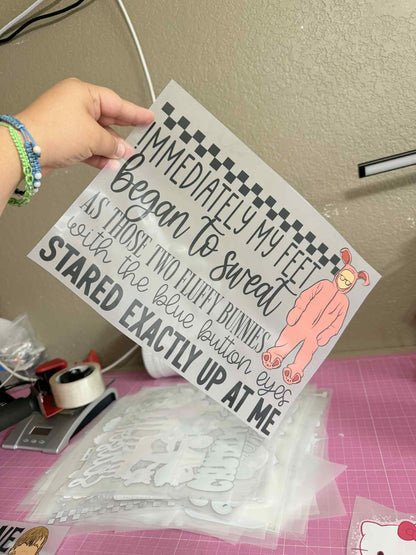 IMMEDIATELY MY FEET
began to sweat
AS THOSE TWO FLUFFY BUNNIES
with the blue button eyes
STARED EXACTLY UP AT ME